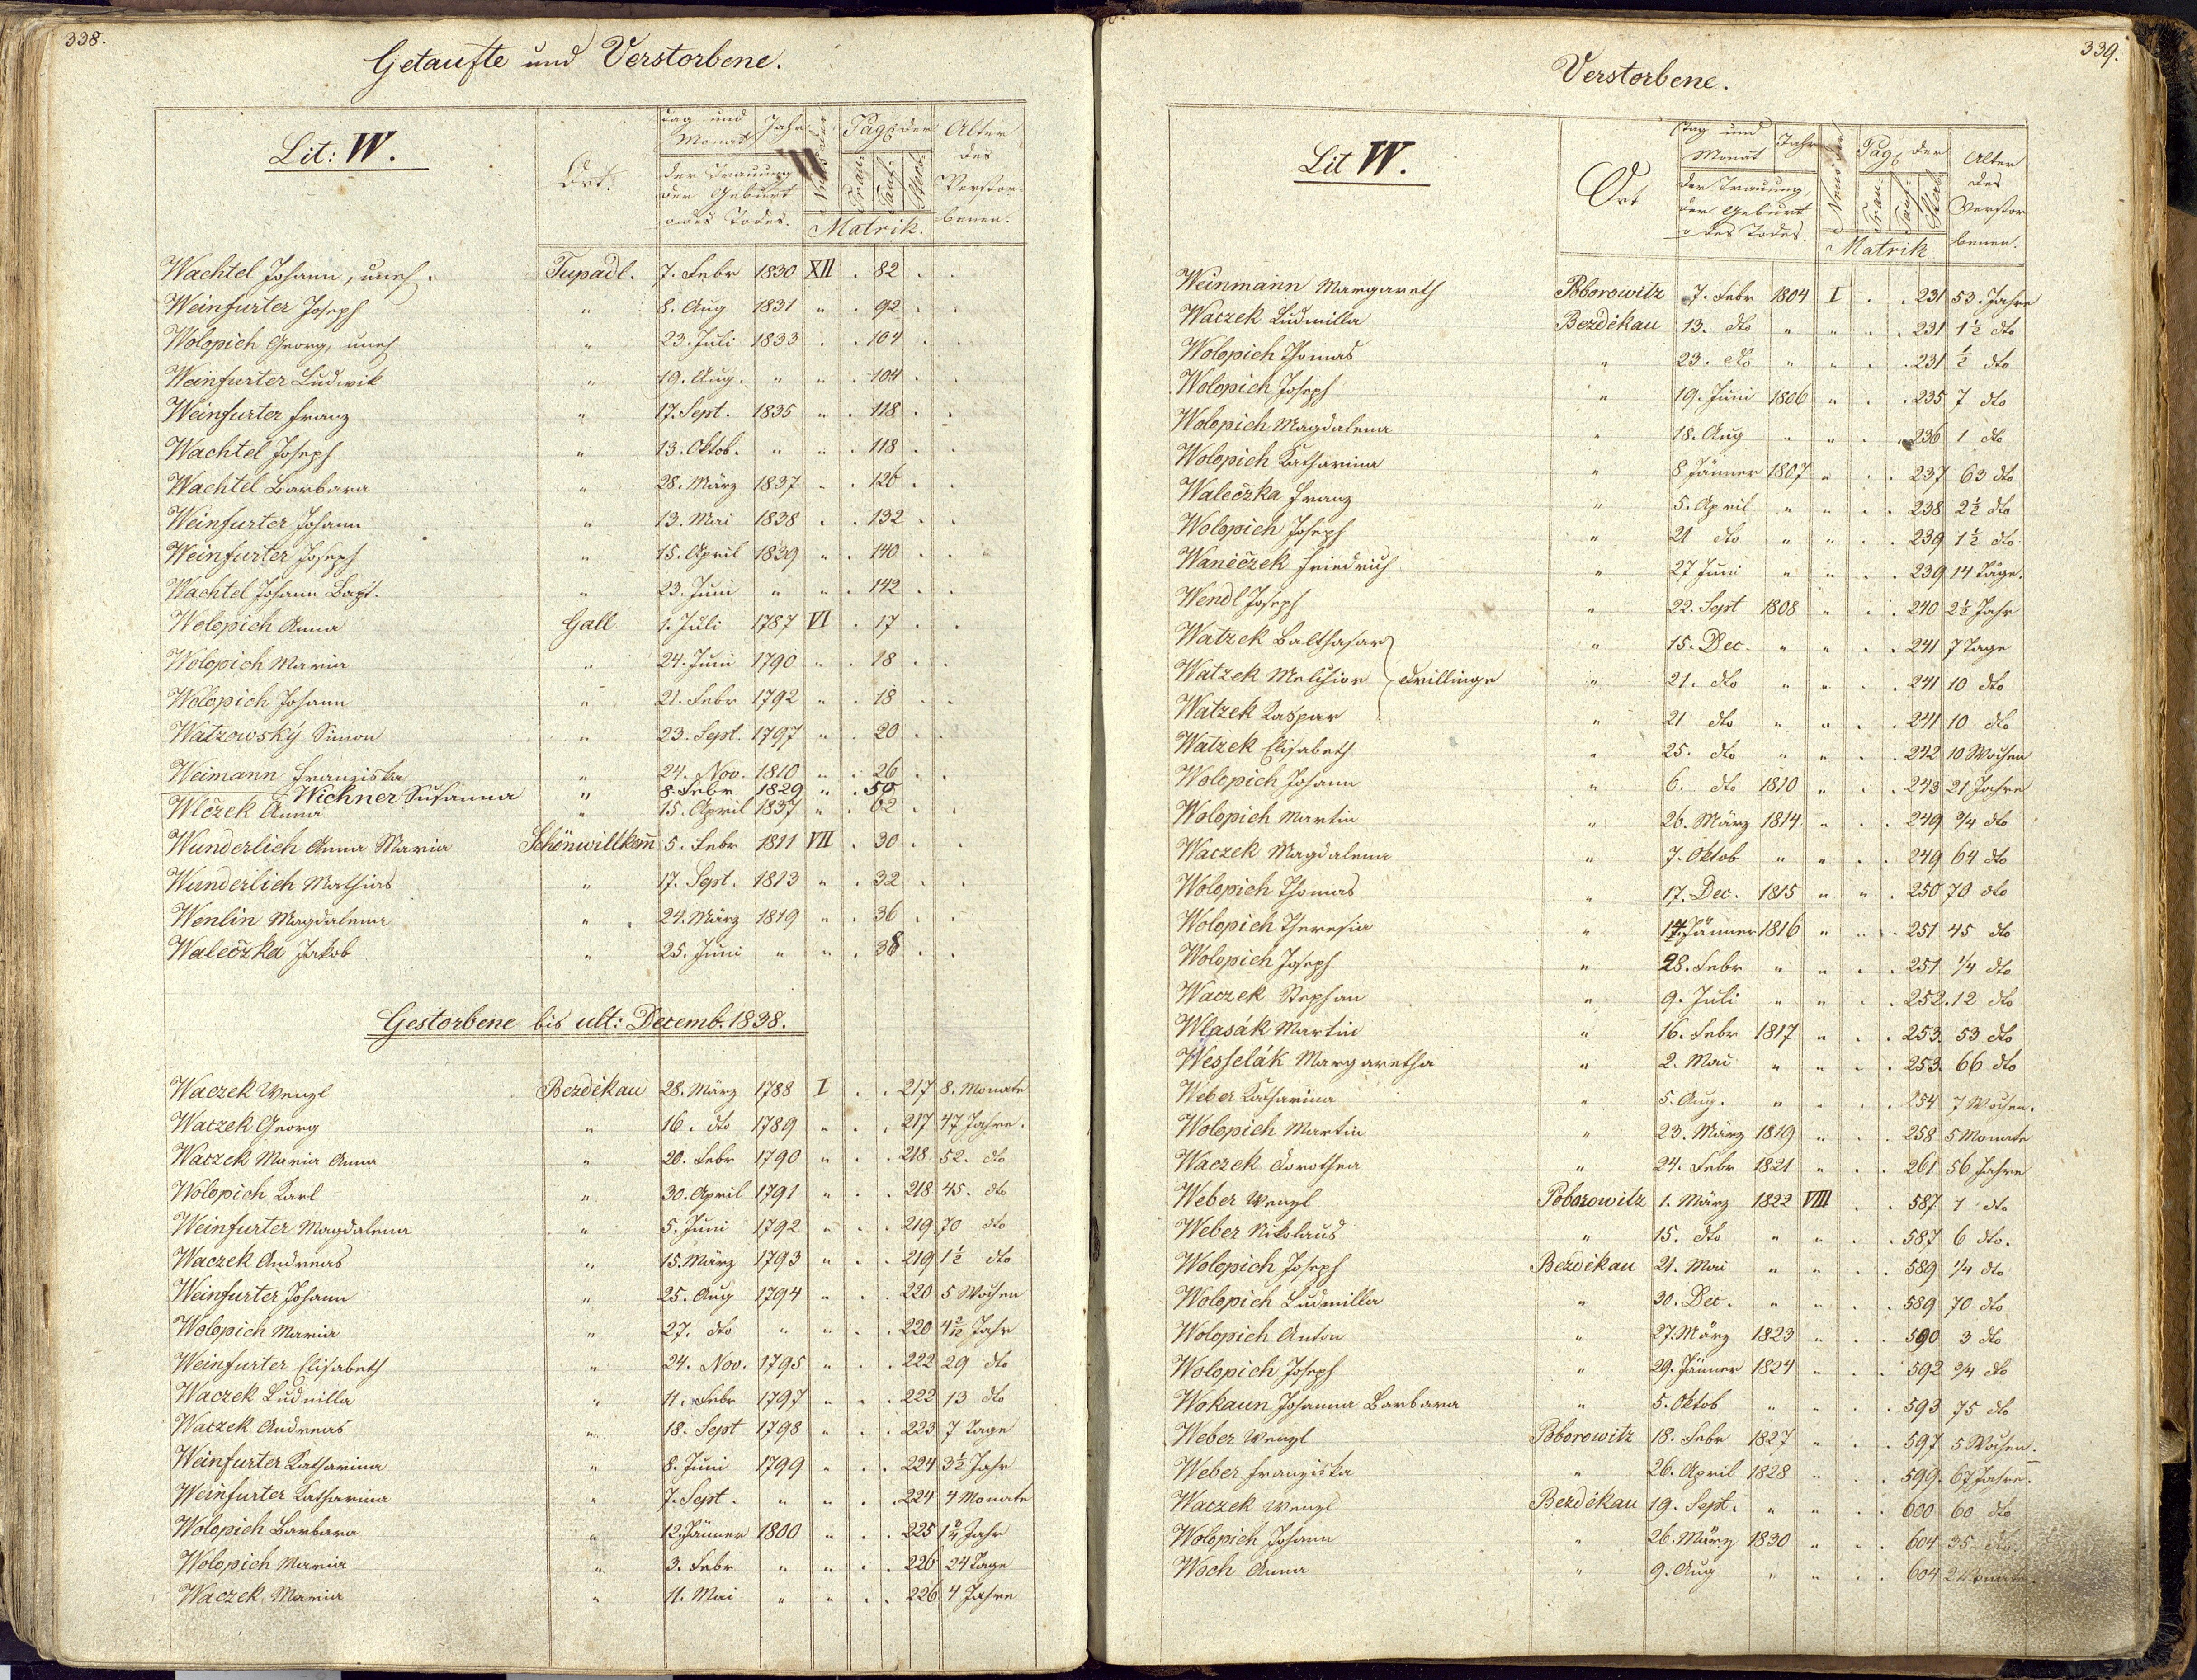 338.
Getaufte und Verstorbene.
Lit: W.
Ort.
Tag und Monat
Jahr
der Trauung
der Geburt
o des Todes.
Pag: der
Trau-
Tauf-
Sterb-
Matrik.
Alter des Verstorbenen.
Wachtel Johann, uneh. Tupadl. 7. Febr 1830 XII . 82 . .
Weinfurter Joseph " 8. Aug 1831 " . 92 . .
Wolopich Georg, uneh " 23. Juli 1833 . . 104 . .
Weinfurter Ludwik " 19. Aug. " " . 104 . .
Weinfurter Franz " 17. Sept. 1835 " . 118 . .
Wachtel Joseph " 13. Oktob. " " . 118 . .
Wachtel Barbara " 28. März 1837 " . 126 . .
Weinfurter Johann " 13. Mai 1838 . . 132 . .
Weinfurter Joseph " 15. April 1839 " . 140 . .
Wachtel Johann Bapt. " 23. Juni " " . 142 . .
Wolopich Anna Gall 1. Juli 1787 VI . 17 . .
Wolopich Maria " 24. Juni 1790 " . 18 . .
Wolopich Johann " 21. Febr 1792 " . 18 . .
Watzowský Simon " 23. Sept. 1797 " . 20 . .
Weimann Franziska " 24. Nov. 1810 " . 26 . .
Wichner Susanna " 8. Febr 1829 " . 50
Wlčzek Anna " 15. April 1837 " . 62 . .
Wunderlich Anna Maria Schönwillkom̄ 5. Febr 1811 VII . 30 . .
Wunderlich Mathias " 17. Sept. 1813 " . 32 . .
Wenlin Magdalena " 24. März 1819 " . 36 . .
Walečzka Jakob " 25. Juni " " . 38 . .
Gestorbene bis ult: Decemb. 1838.
Waczek Wenzl Bezděkau 28. März 1788 I . . 217 8. Monate
Waczek Georg " 16. dto 1789 " . . 217 47 Jahre.
Waczek Maria Anna " 20. Febr 1790 " . . 218 52. dto
Wolopich Karl " 30. April 1791 " . . 218 45. dto
Weinfurter Magdalena " 5. Juni 1792 " . . 219 70 dto
Waczek Andreas " 15. März 1793 " . . 219 1½ dto
Weinfurter Johann " 25. Aug 1794 " . . 220 5 Wochen
Wolopich Maria " 27. dto " " . . 220 4 2/12 Jahr
Weinfurter Elisabeth " 24. Nov. 1795 " . . 222 29 dto
Waczek Ludmilla " 11. Febr 1797 " . . 222 13 dto
Waczek Andreas " 18. Sept 1798 " . . 223 7 Tage
Weinfurter Katharina " 8. Juni 1799 " . . 224 3½ Jahr
Weinfurter Katharina " 7. Sept. " " . . 224 4 Monate
Wolopich Barbara " 12. Jänner 1800 " . . 225 1¾ Jahr
Wolopich Maria " 3. Febr " " . . 226 24 Tage
Waczek Maria " 11. Mai " " . . 226 4 Jahre
339.
Verstorbene.
Lit W.
Ort
Tag und Monat
Jahr
der Trauung,
der Geburt
o des Todes.
Pag: der
Trau-
Tauf-
Sterb-
Matrik
Alter des Verstorbenen.
Weinmann Margareth Poborowitz 7. Febr 1804 I . . 231 53. Jahre
Waczek Ludmilla Bezděkau 13. dto " " . . 231 1½ dto
Wolopich Thomas " 23. dto " " . . 231 ½ dto
Wolopich Joseph " 19. Juni 1806 " . . 235 7 dto
Wolopich Magdalena " 18. Aug " " . . 236 1 dto
Wolopich Katharina " 8 Jänner 1807 " . . 237 63 dto
Walečzka Franz " 5. April " " . . 238 2½ dto
Wolopich Joseph " 21 dto " " . . 239 1½ dto
Waněčzek Friedrich " 27 Juni " " . . 239 14 Täge.
Wendl Joseph " 22. Sept 1808 " . . 240 2½ Jahr
Watzek Balthasar " 15. Dec. " " . . 241 7 Tage
Watzek Melchior Drillinge " 21. dto " " . . 241 10 dto
Watzek Kaspar " 21 dto " " . . 241 10 dto
Watzek Elisabeth " 25. dto " " . . 242 10 Wochen
Wolopich Johann " 6. dto 1810 " . . 243 21 Jahre
Wolopich Martin " 26. März 1814 " . . 249 ¾ dto
Waczek Magdalena " 7. Oktob " " . . 249 64 dto
Wolopich Thomas " 17. Dec. 1815 " " . 250 70 dto
Wolopich Theresia " 14. Jänner 1816 " . . 251 45 dto
Wolopich Joseph " 28. Febr " " . . 251 ¼ dto
Waczek Stephan " 9. Juli " " . . 252. 12 dto
Wlasák Martin " 16. Febr 1817 " . . 253. 53 dto
Wesselák Margaretha " 2. Mai " " . . 253. 66 dto
Weber Katharina " 5. Aug. " " . . 254 7 Wochen.
Wolopich Martin " 23. März 1819 " . . 258 5 Monate
Waczek Dorothea " 24. Febr 1821 " . . 261 56 Jahre
Weber Wenzl Poborowitz 1. März 1822 VIII . . 587 1 dto
Weber Nikolaus " 15. dto " " . . 587 6 dto.
Wolopich Joseph Bezděkau 21. Mai " " . . 589 ¼ dto
Wolopich Ludmilla " 30. Dec. " " . . 589 70 dto
Wolopich Anton " 27. März 1823 " . . 590 3 dto
Wolopich Joseph " 29. Jänner 1824 " . . 592 ¾ dto
Wokaun Johanna Barbara " 5. Oktob " " . . 593 75 dto
Weber Wenzl Poborowitz 18. Febr 1827 " . . 597 5 Wochen.
Weber Franziska " 26. April 1828 " . . 599. 67 Jahre.
Waczek Wenzl Bezděkau 19. Sept. " " . . 600 60 dto
Wolopich Johann " 26. März 1830 " . . 604 35 dto.
Woch Anna " 9. Aug " " . . 604 2 Monate.